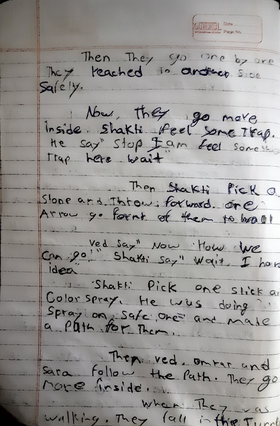 Date
Page No.
Then They go one by one
They reached in another Side
Safely.
Now, they go more
inside. Shakti feel some Trap.
He say" Stop I am feel someth
Trap here wait"
Then Shakti Pick a
Stone and throw forward. one
Arrow go form of them to
Ved say" Now How We
Can go!" Shakti Say" Wait. I have
idea"
Shakti Pick one stick a
Color Spray. He was doing
Spray on safe one and made
a Path for them.
Then ved. omkar and
Sara follow the Path. They go
more inside.
When They was
walking. They fall in the